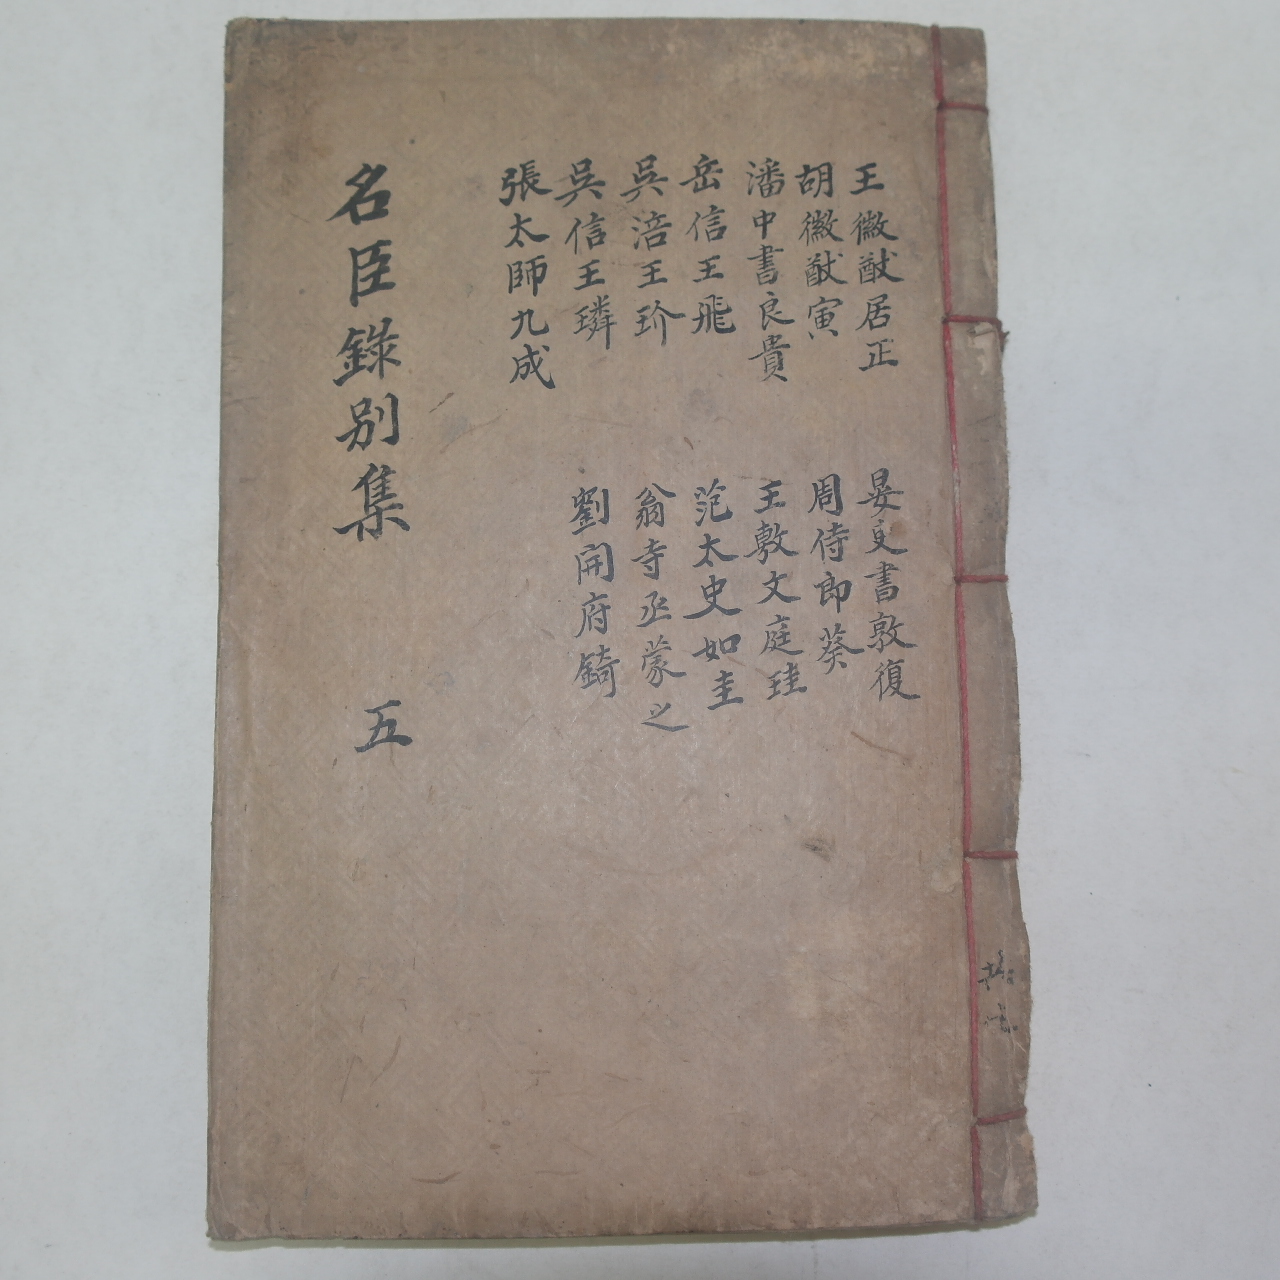 王徽猷居正
胡徽猷寅
潘中書良貴
岳信王飛
吳涪王玠
吳信王璘
張太師九成
晏吏書敦復
周侍郎葵
王敷文庭珪
范太史如圭
翁寺丞蒙之
劉開府錡
名臣錄別集 五